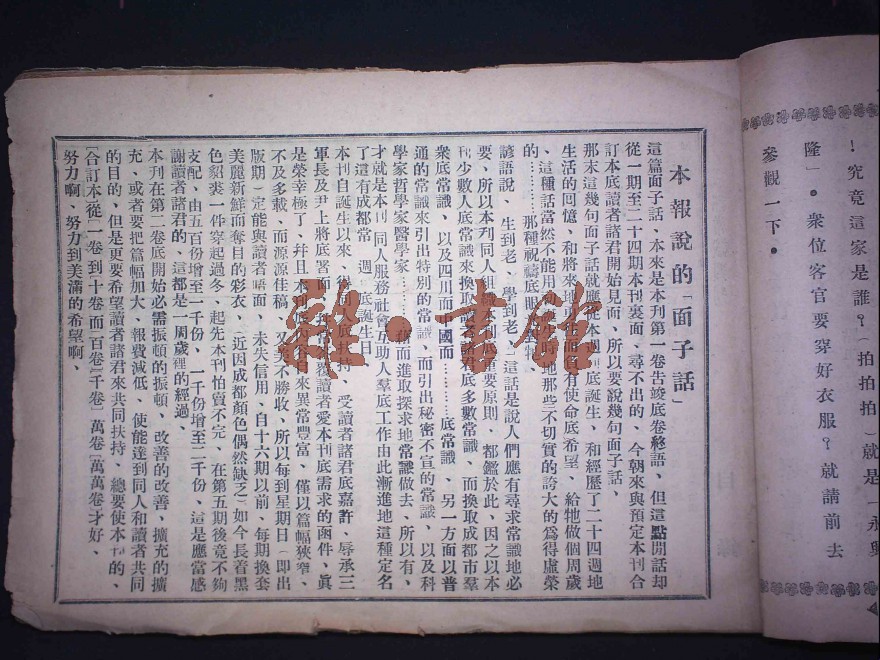 ！究竟這家是誰？（拍拍拍）就是「永興
隆」。衆位客官要穿好衣服？就請前去
參觀一下。
本報說的「面子話」
這篇面子話、本來是本刊第一卷告竣底卷終語、但這點閒話却
從一期至二十四期本刊裏面、尋不出的、今朝來與預定本刊合
訂本底讀者諸君開始見面、所以要說幾句面子話、
那末這幾句面子話就應從本刊底誕生、和經歷了二十四週地
生活的回憶、和將來地
有使命底希望、給牠做個周歲
、這種話當然不能用
時地那些不切實的誇大的爲得虛榮
的……那種祝禱底
諺語說、生到老、學到老、這話是說人們應有尋求常識地必
要、所以本刊同人
重要原則、都鑑於此、因之以本
刊少數人底常識來換取讀者諸君底多數常識、而換取成都市羣
衆底常識、以及四川而
國而………底常識、另一方面以普
通的常識來引出特別的常識、而引出秘密不宣的常識、以及科
學家哲學家醫學家………
而進取探求地常識做去、所以有、
才就是本刊同人服務社會互助人羣底工作由此漸進地這種定名
了這有成都常
週
底誕生日
本刊自誕生以來、
底扶持、受讀者諸君底嘉許、辱承三
軍長及尹上將底署面、
讀者愛本刊底需求的函件、眞
是榮幸極了、幷且本刊
來異常豐富、僅以篇幅狹窄、
不及多載、而源源佳稿、又美不勝收、所以每到星期日（即出
版期）定能與讀者晤面、未失信用、自十六期以前、每期換套
美麗新鮮而奪目的彩衣、（近因成都顏色偶然缺乏）如今長着黑
色貂裘一件穿起過冬、起先本刊怕賣不完、在第五期後竟不夠
支配、由五百份增至一千份、一千份增至二千份、這是應當感
謝讀者諸君的、這都是一周歲裡的經過、
本刊在第二卷底開始必需振頓的振頓、改善的改善、擴充的擴
充、或者要把篇幅加大、報費減低、使能達到同人和讀者共同
的目的、但是更要希望讀者諸君來共同扶持、總要使本刊的、
〔合訂本〕從〔一卷到〔十卷而〔百卷〔千卷〕萬卷〔萬萬卷才好、
努力啊、努力到美滿的希望啊、
雜·書館